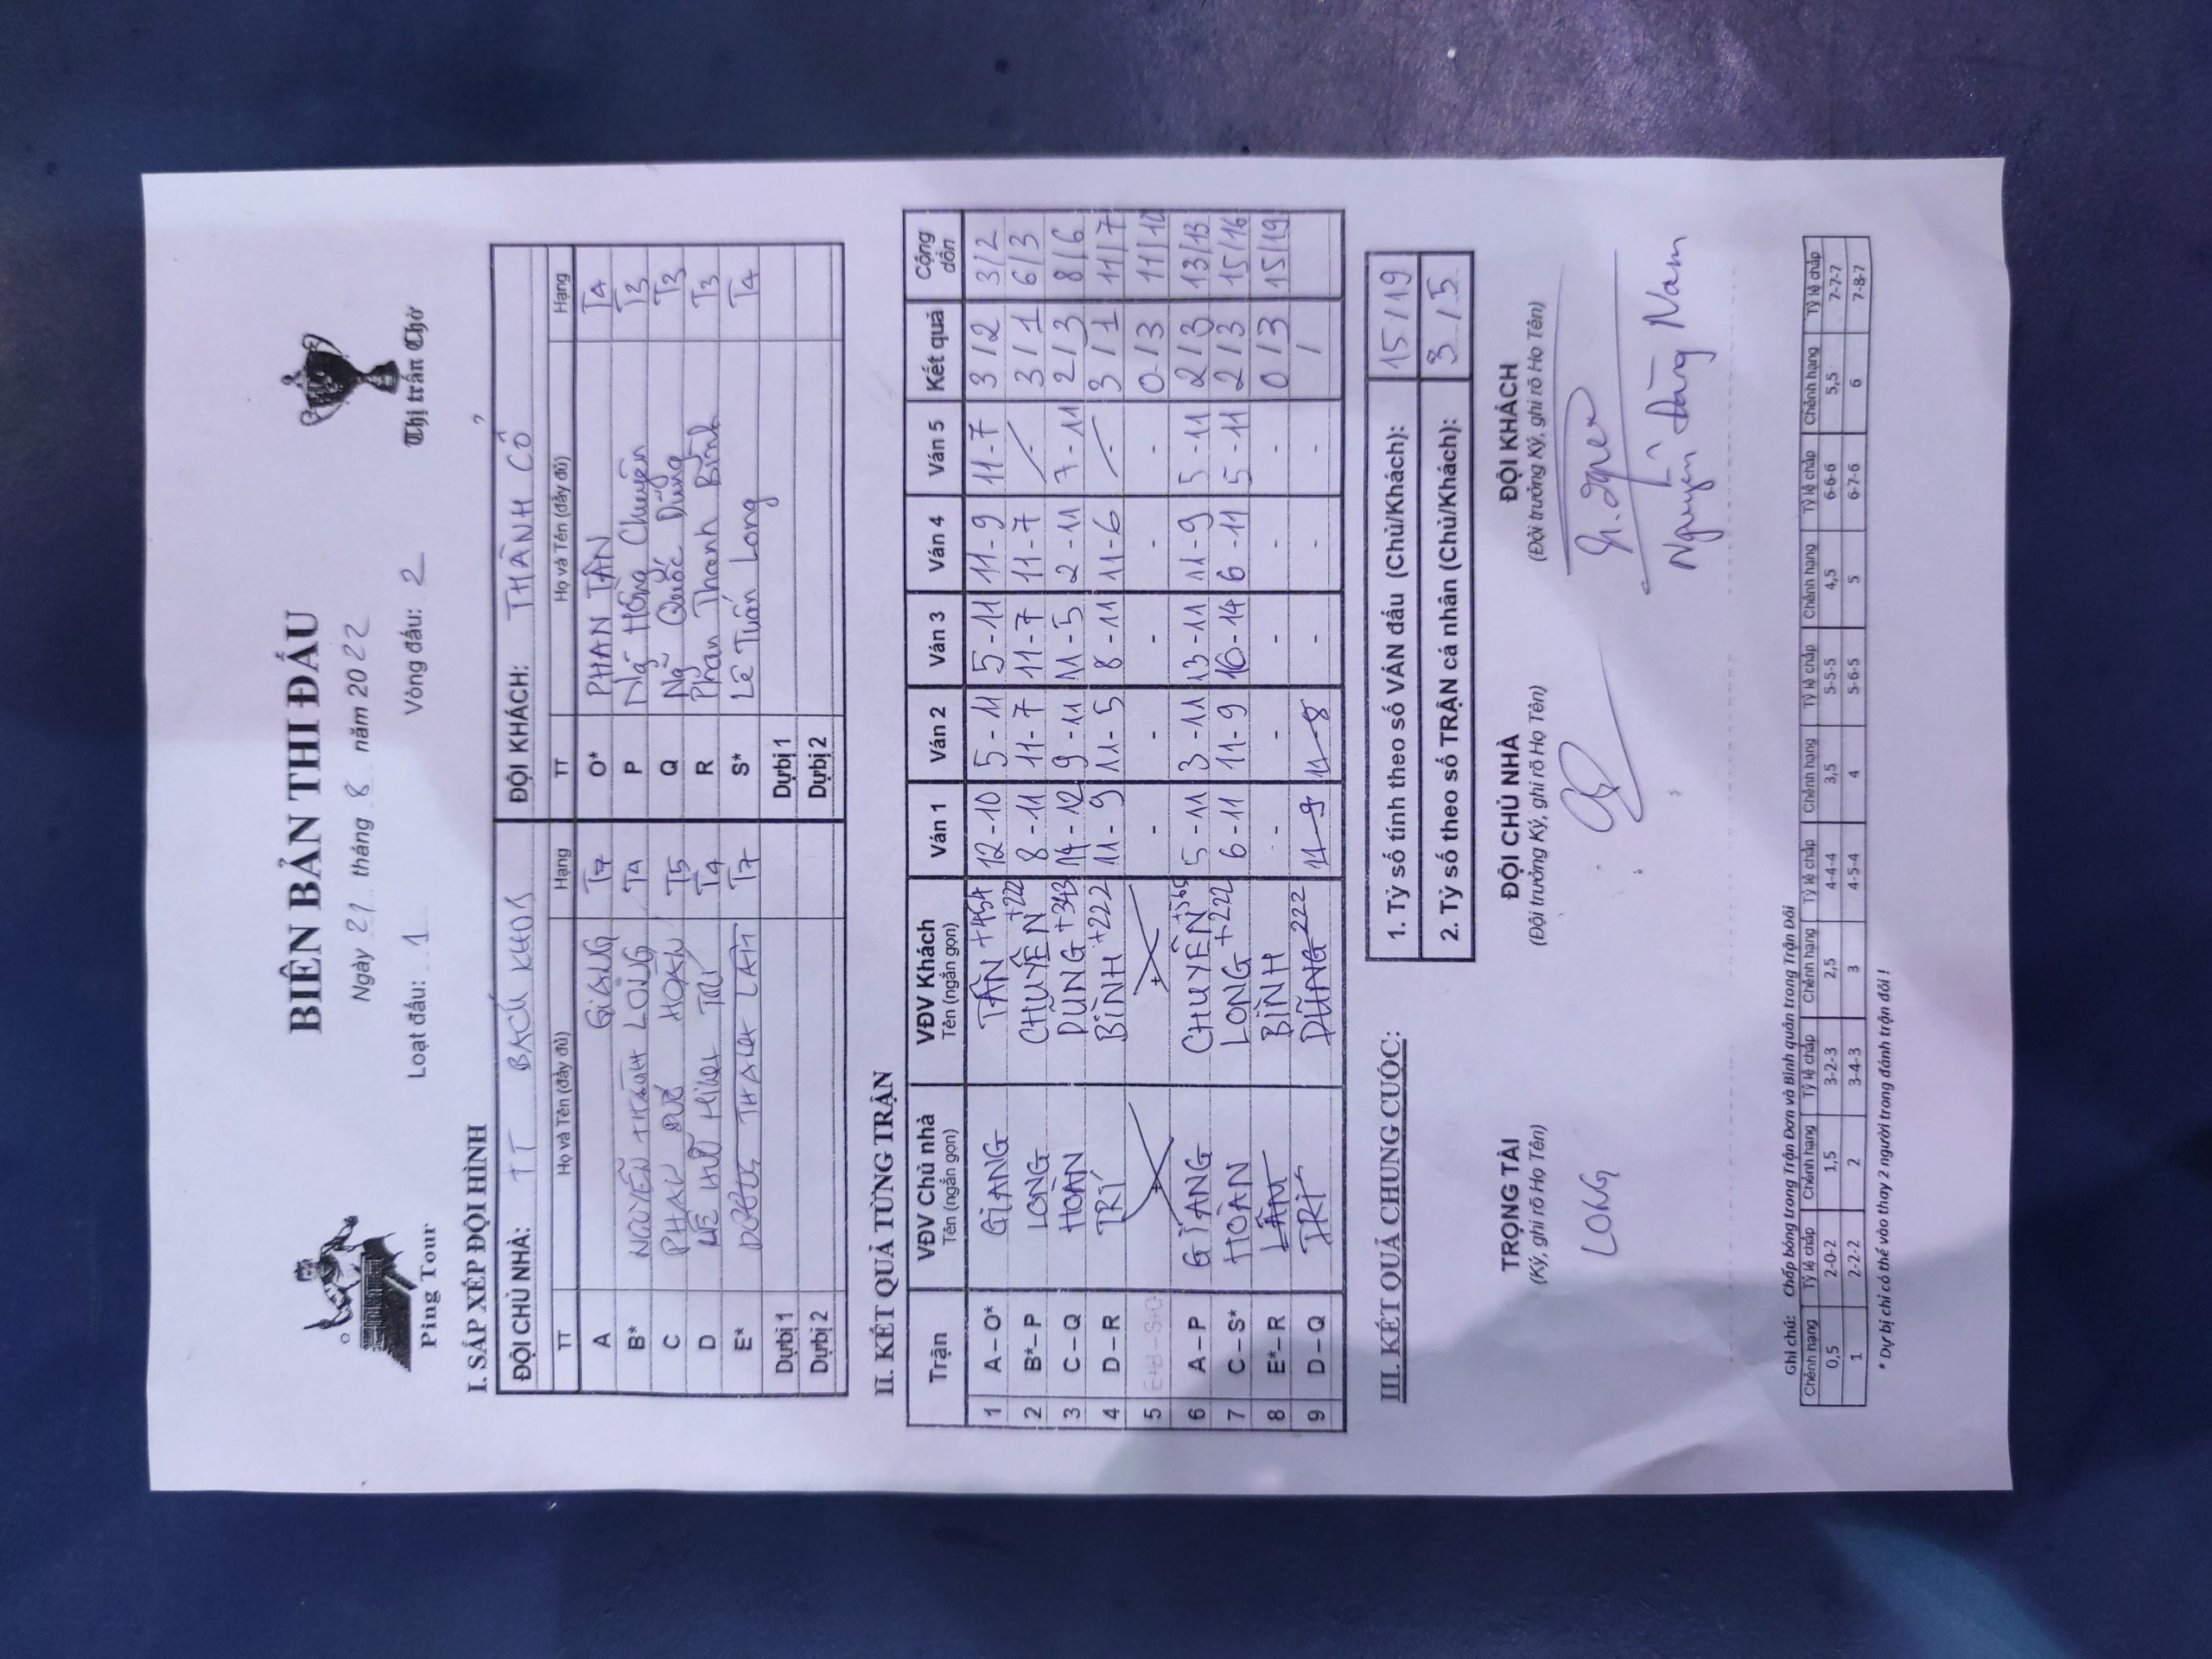 BIÊN BẢN THI ĐẤU
Ping Tour
Thị trấn Chờ
Ngày 21 tháng 8 năm 2022
Loạt đấu: 1 Vòng đấu: 2
I. SẮP XẾP ĐỘI HÌNH
ĐỘI CHỦ NHÀ: TT BÁCH KHOA ĐỘI KHÁCH: THÀNH CỔ
TT Họ và Tên (đầy đủ) Hạng TT Họ và Tên (đầy đủ) Hạng
A GIANG T7 O* PHAN TÂN T4
B* NGUYỄN THÀNH LONG T4 P Ng Hồng Chuyên T3
C PHAN ĐỨC HOÀN T5 Q Ng Quốc Dũng T3
D LÊ HỮU MINH TRÍ T4 R Phan Thanh Bình T3
E* THANH LÂM T7 S* Lê Tuấn Long T4
Dự bị 1 Dự bị 1
Dự bị 2 Dự bị 2
II. KẾT QUẢ TỪNG TRẬN
Trận VĐV Chủ nhà Tên (ngắn gọn) VĐV Khách Tên (ngắn gọn) Ván 1 Ván 2 Ván 3 Ván 4 Ván 5 Kết quả Cộng dồn
1 A – O* GIANG TÂN +454 12-10 5-11 5-11 11-9 11-7 3/2 3/2
2 B* – P LONG CHUYÊN +222 8-11 11-7 11-7 11-7 3/1 6/3
3 C – Q HOÀN DŨNG +343 14-12 9-11 11-5 2-11 7-11 2/3 8/6
4 D – R TRÍ BÌNH +222 11-9 11-5 8-11 11-6 3/1 11/7
5 - - - - - 0/3 11/10
6 A – P GIANG CHUYÊN +565 5-11 3-11 13-11 11-9 5-11 2/3 13/13
7 C – S* HOÀN LONG +222 6-11 11-9 16-14 6-11 5-11 2/3 15/16
8 E* – R LÂM BÌNH - - - - - 0/3 15/19
9 D – Q TRÍ DŨNG 222 11-9 11-8 - - - /
III. KẾT QUẢ CHUNG CUỘC:
1. Tỷ số tính theo số VÁN đấu (Chủ/Khách): 15/19
2. Tỷ số theo số TRẬN cá nhân (Chủ/Khách): 3/5
TRỌNG TÀI ĐỘI CHỦ NHÀ ĐỘI KHÁCH
(Ký, ghi rõ Họ Tên) (Đội trưởng Ký, ghi rõ Họ Tên) (Đội trưởng Ký, ghi rõ Họ Tên)
LONG
Nguyễn Đăng Nam
Ghi chú: Chấp bóng trong Trận Đơn và Bình quân trong Trận Đôi
Chênh hạng Tỷ lệ chấp Chênh hạng Tỷ lệ chấp Chênh hạng Tỷ lệ chấp Chênh hạng Tỷ lệ chấp Chênh hạng Tỷ lệ chấp Chênh hạng Tỷ lệ chấp
0,5 2-0-2 1,5 3-2-3 2,5 4-4-4 3,5 5-5-5 4,5 6-6-6 5,5 7-7-7
1 2-2-2 2 3-4-3 3 4-5-4 4 5-6-5 5 6-7-6 6 7-8-7
* Dự bị chỉ có thể vào thay 2 người trong đánh trận đôi !